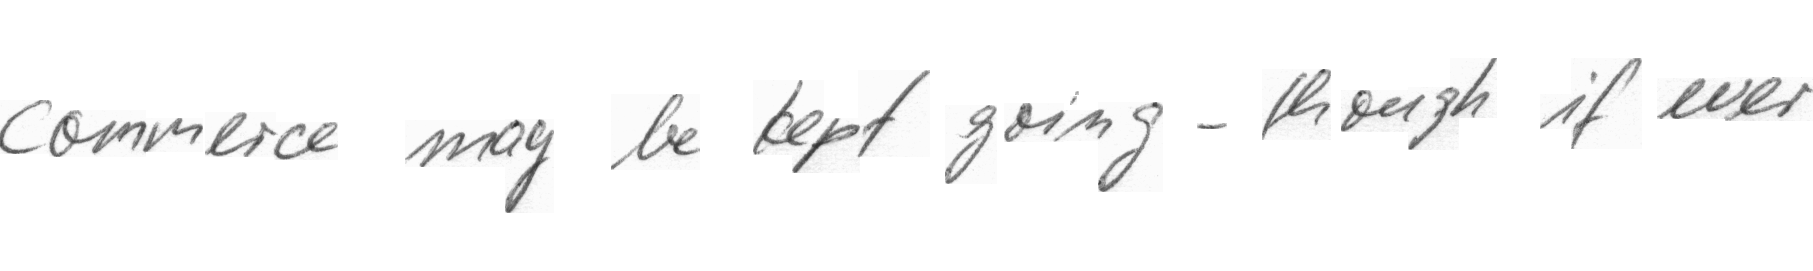 Commerce may be kept going - though if ever